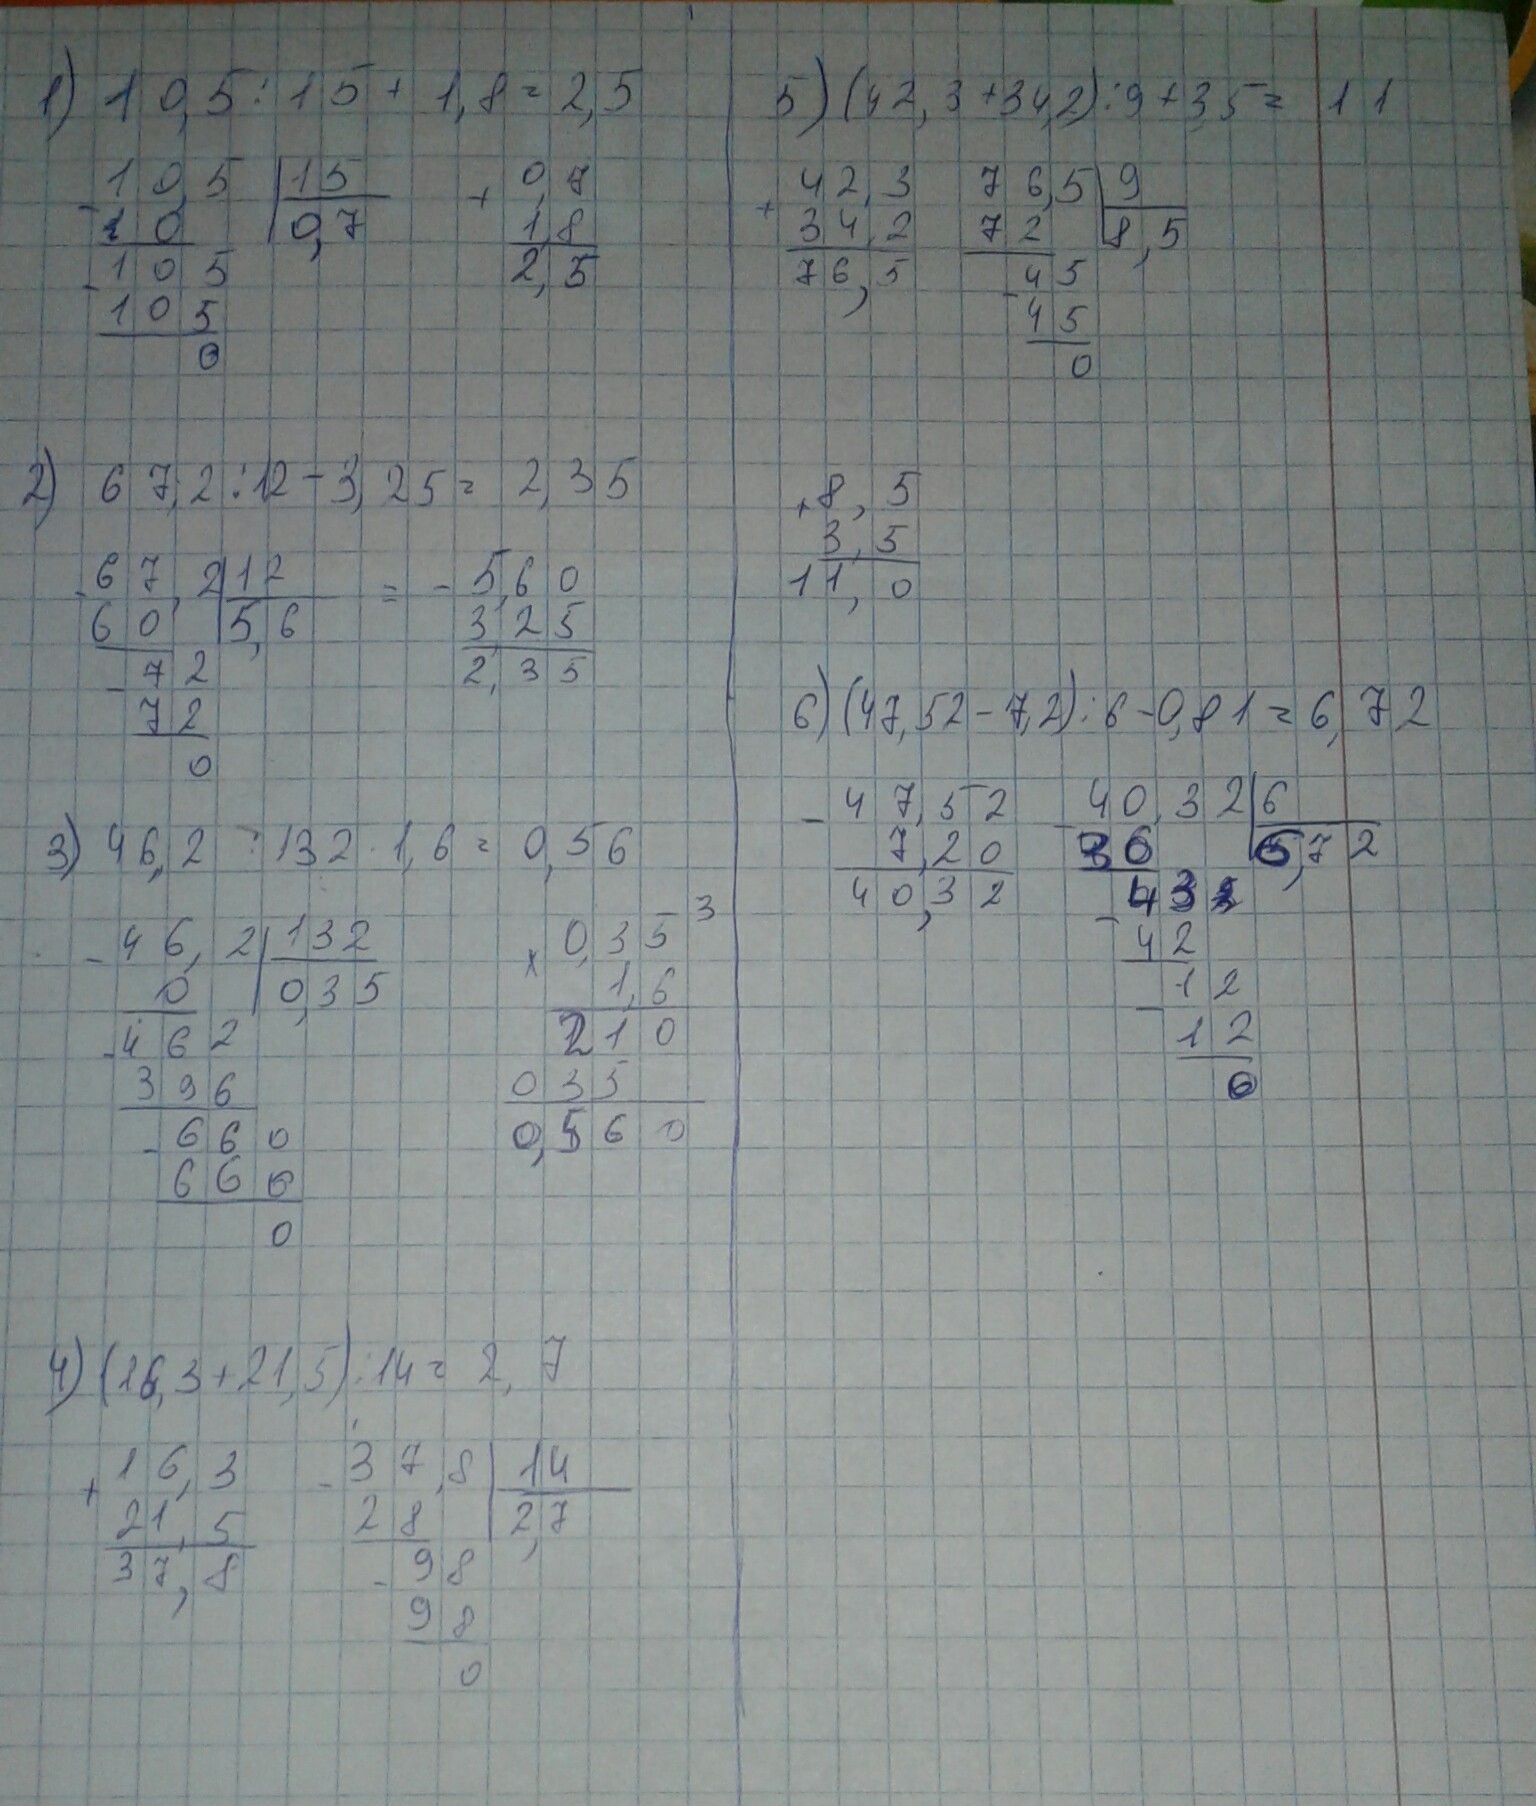 1) 10,5 : 15 + 1,8 = 2,5
- 10,5 | 15
0 | 0,7
- 105
105
0
+ 0,7
1,8
2,5
2) 67,2 : 12 - 3,25 = 2,35
- 67,2 | 12
60 | 5,6
- 72
72
0
= - 5,60
3,25
2,35
3) 46,2 : 132 · 1,6 = 0,56
- 46,2 | 132
0 | 0,35
- 462
396
- 660
660
0
3
× 0,35
1,6
210
035
0,560
4) (16,3 + 21,5) : 14 = 2,7
+ 16,3
21,5
37,8
- 37,8 | 14
28 | 2,7
- 98
98
0
5) (42,3 + 34,2) : 9 + 3,5 = 11
+ 42,3
34,2
76,5
76,5 | 9
72 | 8,5
- 45
45
0
+ 8,5
3,5
11,0
6) (47,52 - 7,2) : 6 - 0,81 = 6,72
- 47,52
7,20
40,32
- 40,32 | 6
36 | 6,72
43
- 42
12
- 12
0